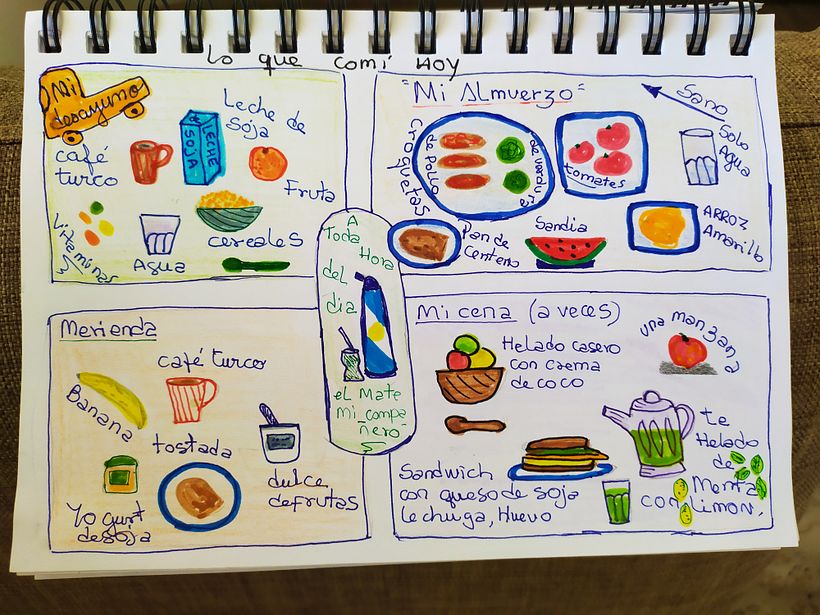 Lo que comí HOY
Mi
desayuno
café
turco
LECHE
SOJA
Leche de
Soja
Fruta
cereales
Vitaminas
Agua
"Mi Almuerzo"
croquetas
de Pollo
de verdura
tomates
Sano
Solo
Agua
Pan de
Centeno
Sandia
ARROZ
Amarillo
A
Toda
Hora
del
dia
el Mate
mi compa
ñero
Merienda
Banana
café turco
tostada
Yogurt
de soja
dulce
de frutas
Mi cena (a veces)
Helado casero
con crema
de coco
una manzana
Sandwich
con queso de soja
Lechuga, Huevo
te
Helado
de
Menta
con Limon.